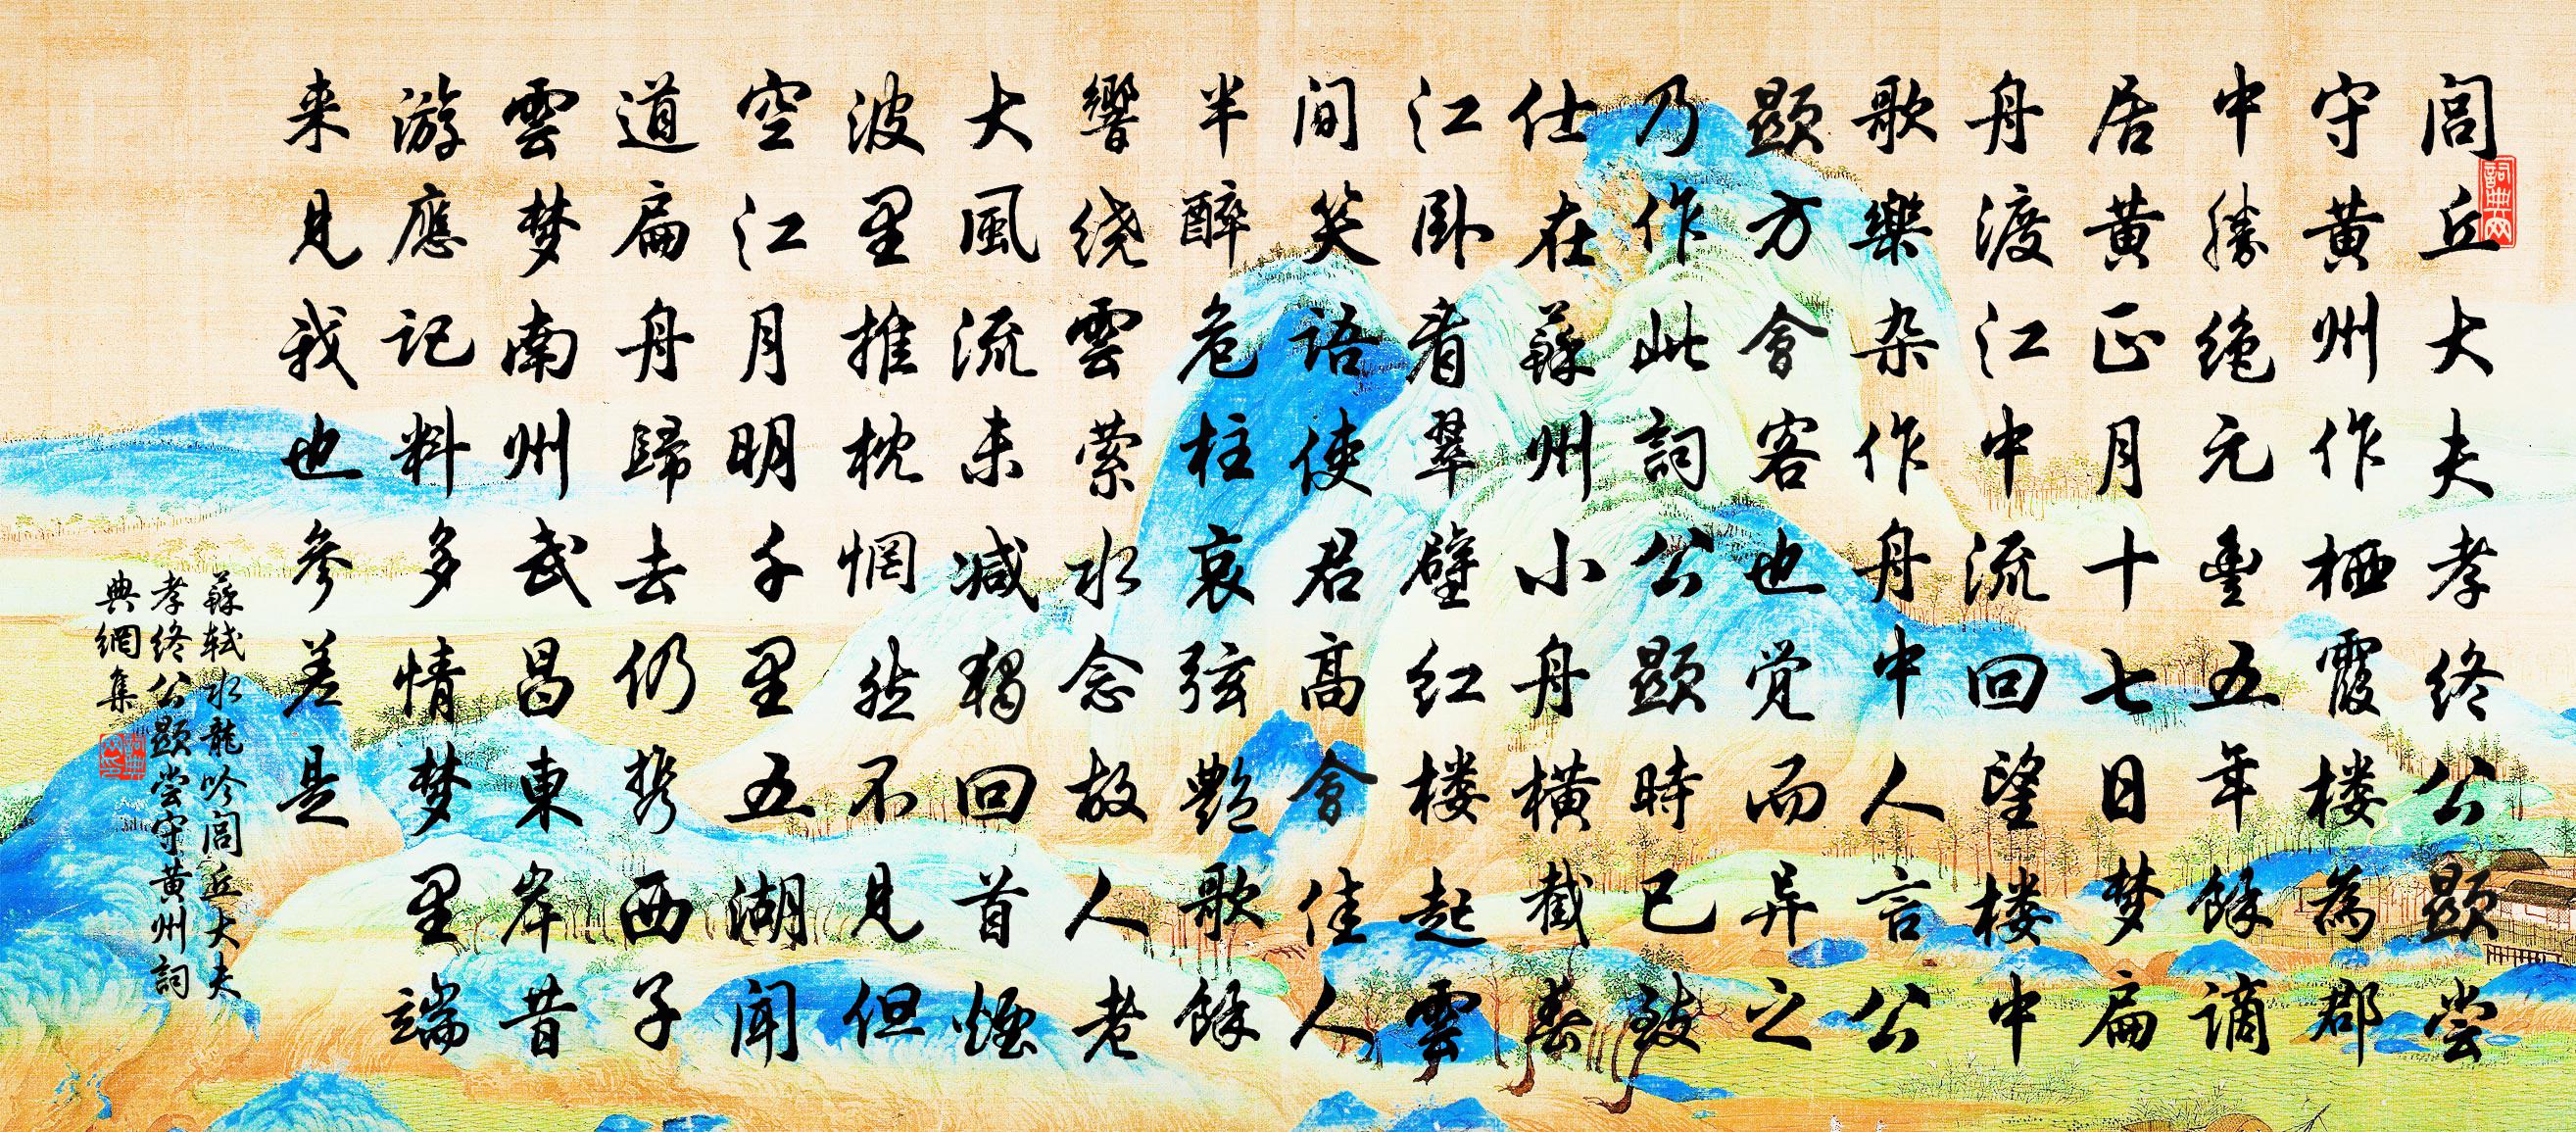 閭丘大夫孝终公顯尝
守黄州作栖霞楼為郡
中勝绝元豊五年餘謫
居黄正月十七日梦扁
舟渡江中流回望楼中
歌樂杂作舟中人言公
顯方會客也觉而异之
乃作此詞公顯時已致
仕在蘇州小舟横截春
江卧看翠壁红楼起雲
间笑語使君高會佳人
半醉危柱哀弦艷歌餘
響绕雲萦水念故人老
大風流未减獨回首煙
波里推枕惘然不見但
空江月明千里五湖闻
道扁舟歸去仍携西子
雲梦南州武昌東岸昔
游應記料多情梦里端
来見我也参差是
蘇轼水龍吟閭丘大夫
孝终公顯尝守黄州詞
典網集
詞典网